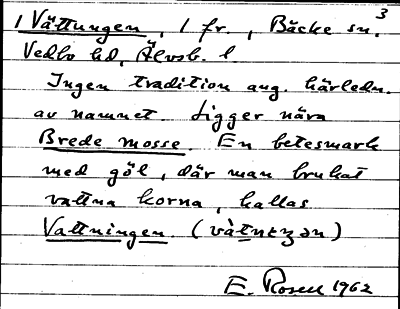 3
1 Vättungen, 1 fr., Bäcke sn.
Vedbo hd, Älvsb. l.
Ingen tradition ang. härledn.
av namnet. Ligger nära
Brede mosse. En betesmark
med göl, där man brukat
vattna korna, kallas
Vattningen. (vàtnɩŋən)
E. Rosell 1962